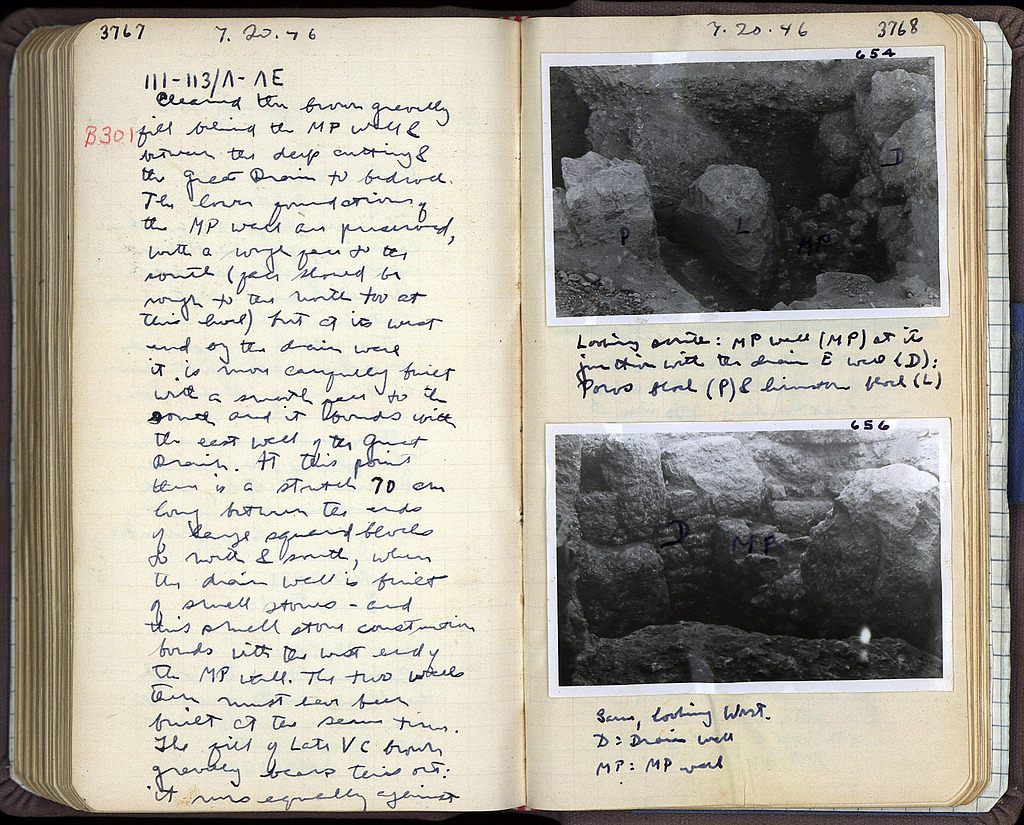 3767
7.20.46
111-113/Λ-ΛE
Cleared the brown gravelly
B301
fill behind the MP wall &
between the deep cutting &
the Great Drain to bedrock.
The lower foundations of
the MP wall are preserved,
with a rough face to the
south (face should be
rough to the north too at
this level) but at its west
end by the drain wall
it is more carefully built
with a smooth face to the
south and it bonds with
the east wall of the Great
Drain. At this point
there is a stretch 70 cm
long between the ends
of large squared blocks
to north & south, where
the drain wall is built
of small stones - and
this small stone construction
bonds with the west end of
the MP wall. The two walls
then must have been
built at the same time.
The fill of Late V C brown
gravelly bears this out:
it runs equally against
7.20.46
3768
654
D
P
L
MP
Looking south: MP wall (MP) at its
junction with the drain E wall (D):
Poros block (P) & limestone block (L)
656
D
MP
Same, looking West.
D: Drain wall
MP: MP wall